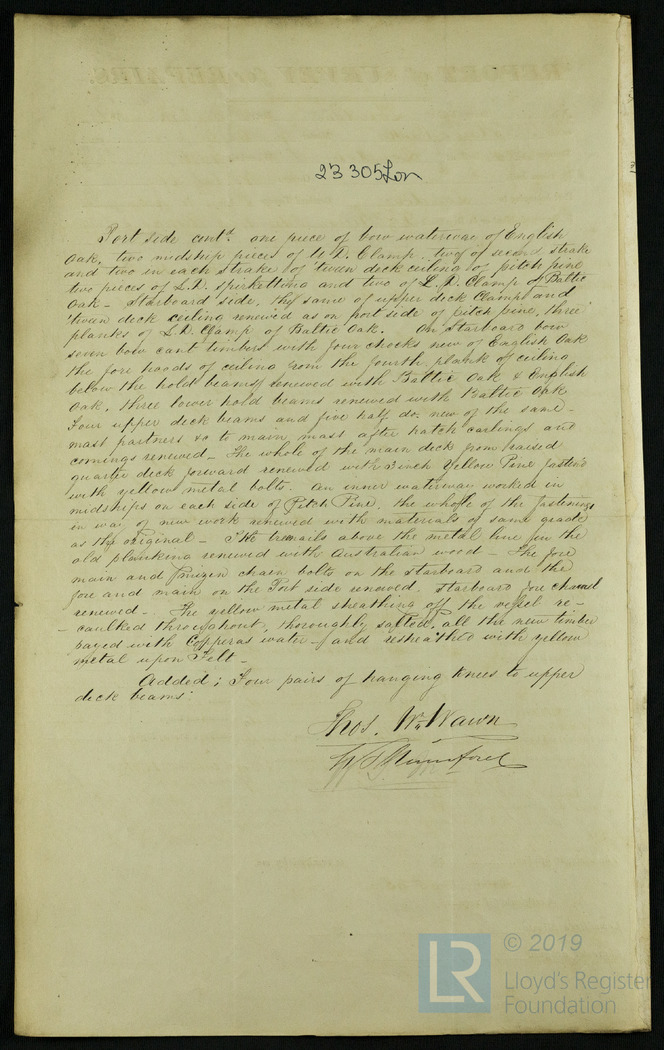 REPORT of SURVEY for REPAIRS.
23305 Lon
Port side contd. one piece of bow waterway of English
Oak, two midship pieces of U.D. Clamp, two of second strake
and two in each strake of 'tween deck ceiling of pitch pine
two pieces of L.D. spirketting and two of L.D. Clamp of Baltic
Oak – Starboard side, the same of upper deck Clamp and
'tween deck ceiling renewed as on port side of pitch pine, three
planks of L.D. Clamp of Baltic Oak. On Starboard bow
seven bow cant timbers with four chocks new of English Oak
the fore hoods of ceiling from the fourth plank of ceiling
below the hold beams renewed with Baltic Oak & English
Oak, three lower hold beams renewed with Baltic Oak
Four upper deck beams and five half do. new of the same –
mast partners &c to main mast after hatch carlings and
comings renewed – The whole of the main deck from raised
quarter deck forward renewed with 3 inch Yellow Pine fasten'd
with yellow metal bolts. an inner waterway worked in
midships on each side of Pitch Pine, the whole of the fastenings
in way of new work renewed with materials of same grade
as the original – The treenails above the metal line in the
old planking renewed with Australian wood – The fore
main and mizen chain bolts on the starboard and the
fore and main on the Port side renewed, starboard fore channel
renewed – The yellow metal sheathing off the vessel re-
– caulked throughout, thoroughly salted, all the new timber
payed with Copperas water – and resheathed with yellow
metal upon Felt –
Added; Four pairs of hanging knees to upper
deck beams.
Thos. Wm Wawn
Mumford
LR
© 2019
Lloyd's Register
Foundation